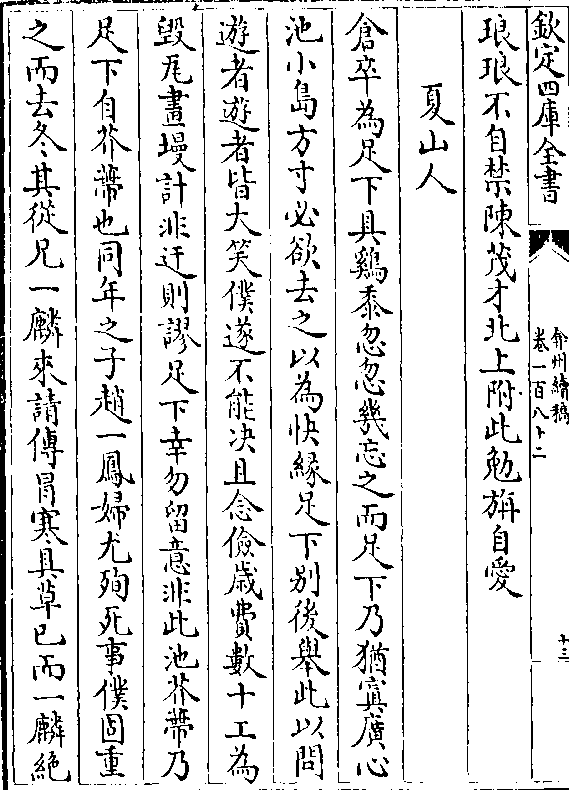 欽定四庫全書
弇州續稿
卷一百八十二
十三
琅琅不自禁陳茂才北上附此勉旃自愛
夏山人
倉卒為足下具鷄黍忽忽幾忘之而足下乃猶寘廣心
池小島方寸必欲去之以為快縁足下别後舉此以問
遊者遊者皆大笑僕遂不能决且念儉歳費數十工為
毁瓦畫墁計非迂則謬足下幸勿留意非此池芥蔕乃
足下自芥蔕也同年之子趙一鳳婦尤殉死事僕固重
之而去冬其從兄一麟來請傳冐寒具草已而一麟絶